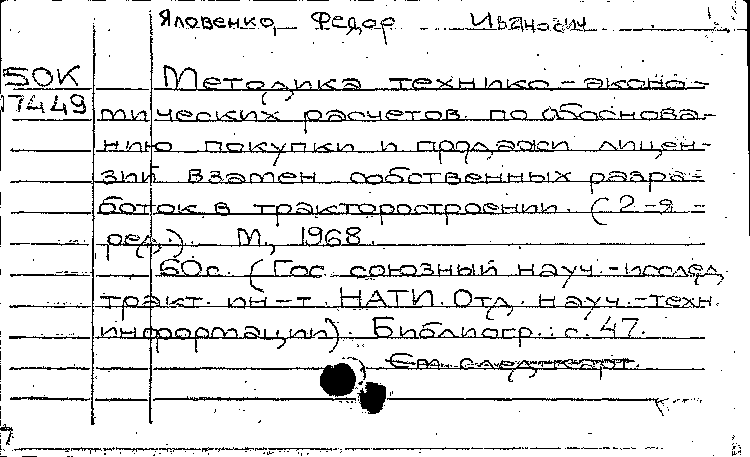 Яловенко, Федор Иванович
БОК Методика технико-эконо-
17449 мических расчетов по обоснова-
нию покупки и продажи лицен-
зий взамен собственных разра-
боток в тракторостроении. (2-я -
ред.). М., 1968.
60с. (Гос. союзный науч.-исслед.
тракт. ин-т. НАТИ. Отд. науч.-техн.
информации). Библиогр.: с. 47.
См. след. карт.